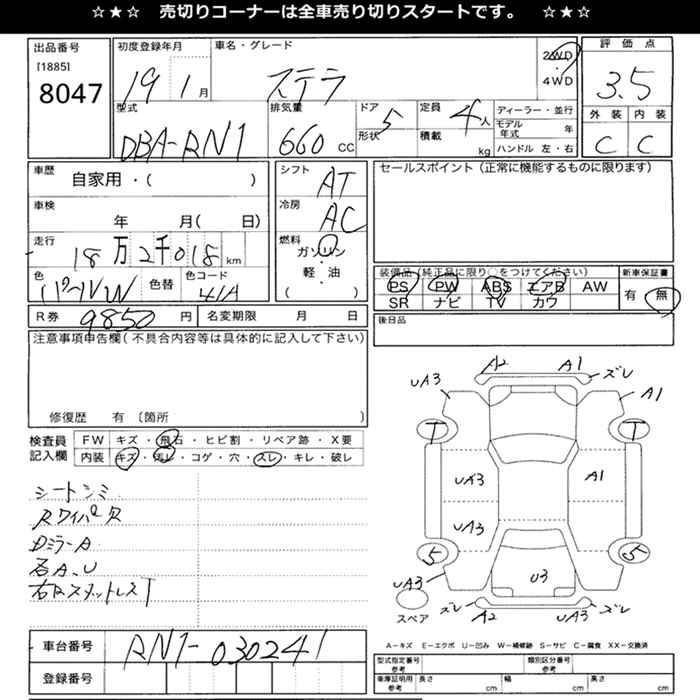 ☆★☆ 売切りコーナーは全車売り切りスタートです。 ☆★☆
出品番号
[1885]
8047
初度登録年月
19 1 月
車名・グレード
ステラ
2WD
・
4WD
評価点
3.5
外装 内装
C C
型式
DBA-RN1
排気量
660 CC
ドア 5
形状
定員 4 人
積載 kg
ディーラー・並行
モデル年式 年
ハンドル 左・右
車歴
自家用・( )
車検
年 月( 日)
走行
18万2千018 km
色
パールW
色替
色コード
41A
シフト
AT
冷房
AC
燃料
ガソリン
軽・油
( )
セールスポイント(正常に機能するものに限ります)
装備品(純正品に限り○をつけてください)
PS PW ABS エアB AW
SR ナビ TV カワ
新車保証書
有 無
後日品
R券 9850 円
名変期限 月 日
注意事項申告欄(不具合内容等は具体的に記入して下さい)
修復歴 有 〔箇所 〕
検査員記入欄
FW キズ・飛石・ヒビ割・リペア跡・X要
内装 キズ・汚レ・コゲ・穴・スレ・キレ・破レ
シートシミ
Rワイパ欠
DミラーA
各A.U
A2 A1 ズレ
UA3 A1
T T
UA3 A1
UA3
5 5
UA3 U3
スペア
ズレ A2 UA3 ズレ
A-キズ E-エクボ U-凹み W-補修跡 S-サビ C-腐食 XX-交換済
車台番号 RN1-030241
登録番号
型式指定番号
参考
類別区分番号
参考
車庫証明用
参考
長さ cm 幅 cm 高さ cm